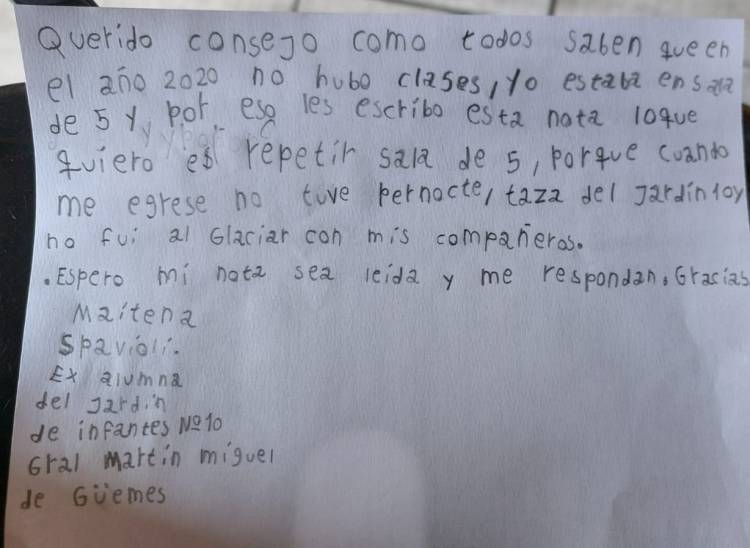 Querido consejo como todos saben que en
el año 2020 no hubo clases, Yo estaba en sala
de 5 y, por eso les escribo esta nota loque
quiero es repetir sala de 5, porque cuando
me egrese no tuve pernocte, taza del Jardín 10 y
no fui al Glaciar con mis compañeros.
. Espero mi nota sea leída y me respondan. Gracias
Maitena
Spavioli.
Ex alumna
del Jardin
de infantes Nº10
Gral Martín miguel
de Güemes